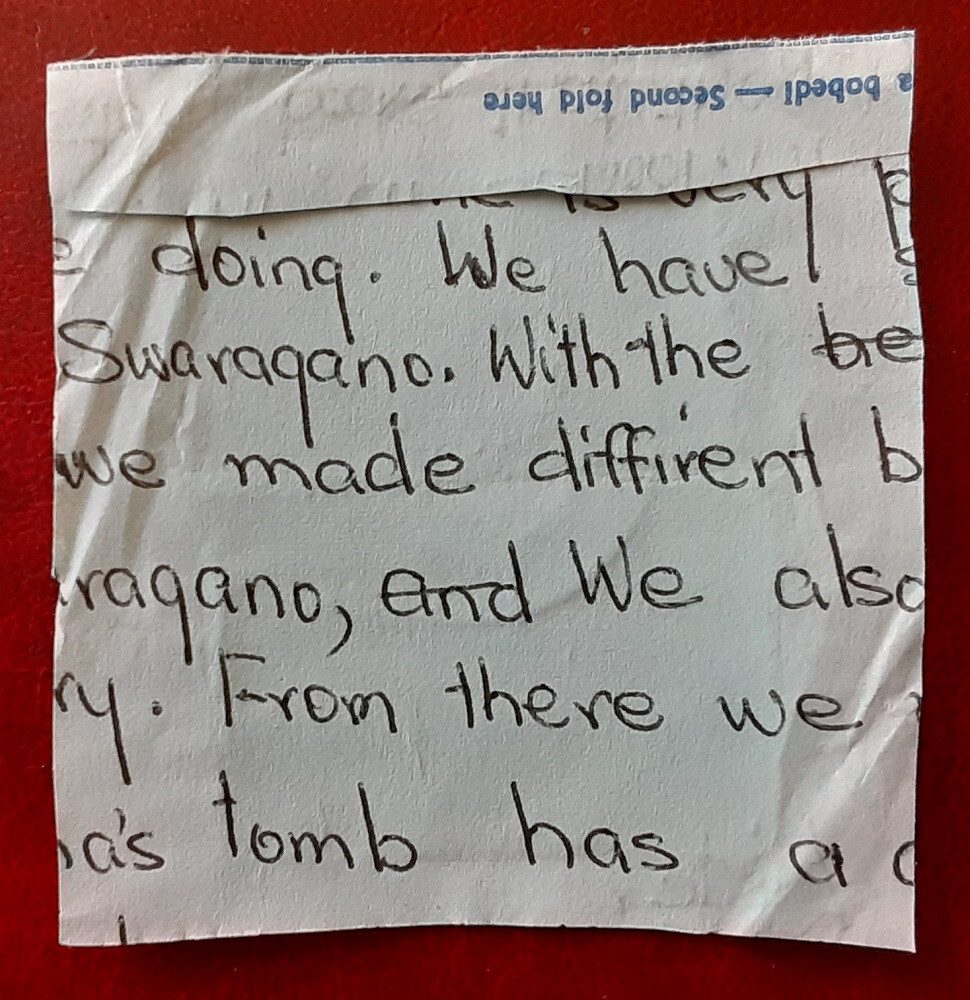 a bobedl — Second fold here
is very
doing. We have
Swaragano. With the be
we made diffirent b
ragano, and We also
ry. From there we
a's tomb has a